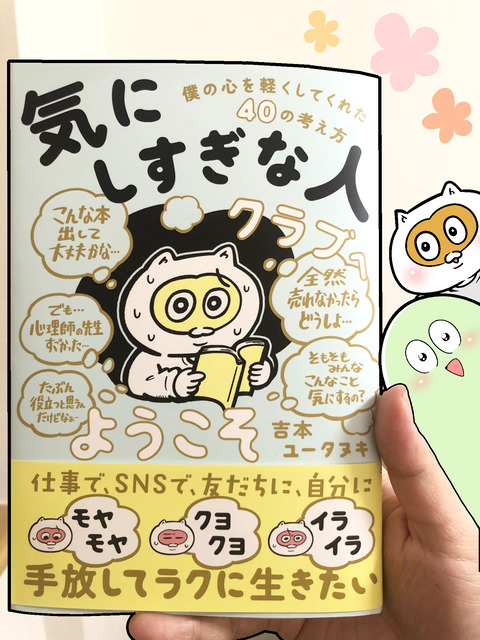 僕の心を軽くしてくれた
40の考え方
気に
しすぎな人
クラブへ
ようこそ
こんな本
出して
大丈夫かな…
でも…
心理師の先生
すすめてくれたし…
たぶん
役立つと思うんだけどなぁ…
全然
売れなかったら
どうしよ…
そもそも
みんな
こんなこと
気にするの?
吉本
ユータヌキ
仕事で、SNSで、友だちに、自分に
モヤ
モヤ
クヨ
クヨ
イラ
イラ
手放してラクに生きたい